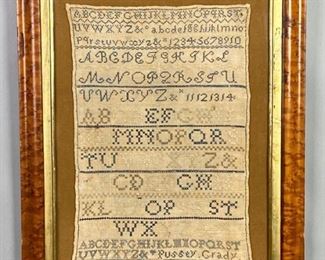 ABCDEFGHIJKLMNOPQRST
UVWXYZ& abcdefghiklmno
pqrstuvwxyz& 12345678910
ABCDEFGHIKL
MNOPQRSTU
VWXYZ& 11121314
AB EFGH
MNOPQR
TU XYZ&
CD GH
KL OP ST
WX
ABCDEFGHIJKLMNOPQRST
UVWXYZ& Pussey Grady